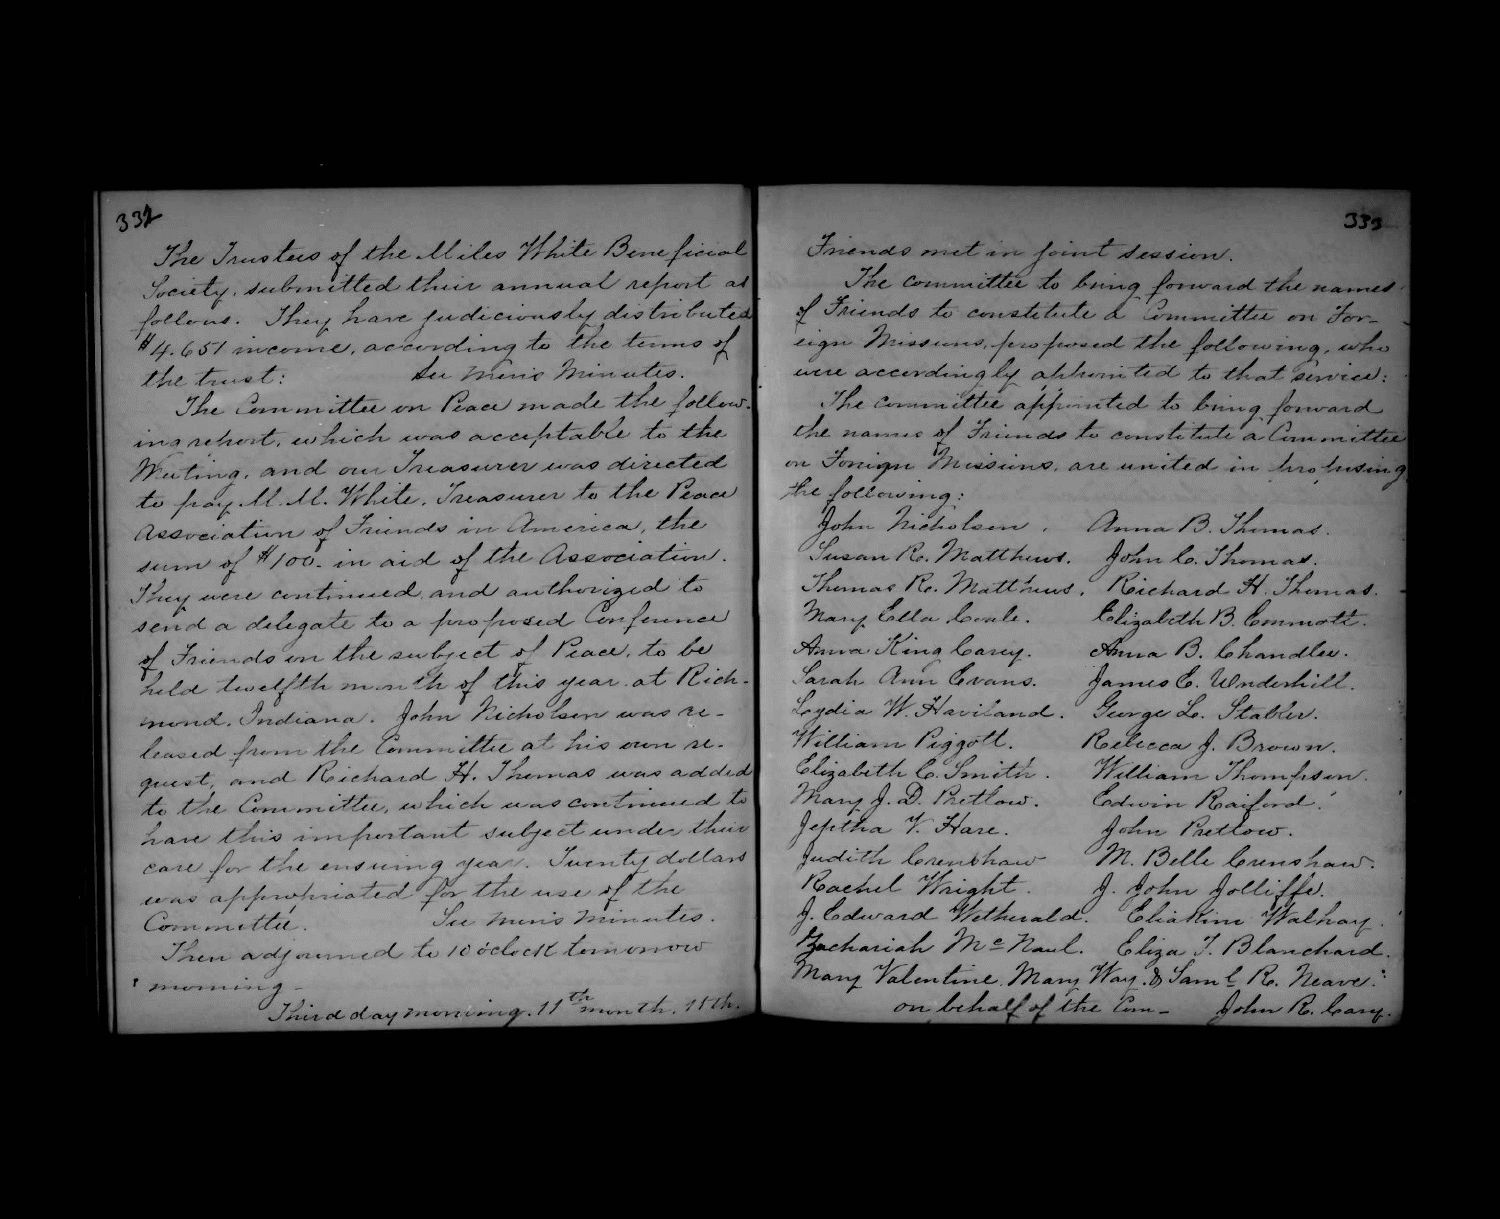 332
The Trustees of the Miles White Beneficial
Society, submitted their annual report as
follows. They have judiciously distributed
$4.651 income, according to the terms of
the trust: See Men's Minutes.
The Committee on Peace made the follow-
ing report, which was acceptable to the
Meeting, and our Treasurer was directed
to pay M. M. White, Treasurer to the Peace
Association of Friends in America, the
sum of $100. in aid of the Association.
They were continued and authorized to
send a delegate to a proposed Conference
of Friends on the subject of Peace, to be
held twelfth month of this year at Rich-
mond, Indiana. John Nicholson was re-
leased from the Committee at his own re-
quest, and Richard H. Thomas was added
to the Committee, which was continued to
have this important subject under their
care for the ensuing year. Twenty dollars
was appropriated for the use of the
Committee. See Men's Minutes.
Then adjourned to 10 o'clock tomorrow
morning-
Third day morning. 11th month, 15th.
333
Friends met in joint session.
The committee to bring forward the names
of Friends to constitute a Committee on For-
eign Missions, proposed the following, who
were accordingly appointed to that service:
The committee appointed to bring forward
the names of Friends to constitute a Committee
on Foreign Missions, are united in proposing
the following:
John Nicholson. Anna B. Thomas.
Susan R. Matthews. John C. Thomas.
Thomas R. Matthews. Richard H. Thomas.
Mary Ella Coale. Elizabeth B. Emmott.
Anna King Carey. Anna B. Chandlee.
Sarah Ann Evans. James E. Underhill.
Lydia W. Haviland. George L. Stabler.
William Piggott. Rebecca J. Brown.
Elizabeth C. Smith. William Thompson.
Mary J. D. Pretlow. Edwin Raiford.
Jeptha V. Hare. John Pretlow.
Judith Crenshaw M. Belle Crenshaw.
Rachel Wright. J. John Jolliffe.
J. Edward Wetherald. Eliakim Walhay.
Zachariah McNaul. Eliza T. Blanchard.
Mary Valentine. Mary Way. & Saml R. Neave.
on behalf of the Com- John R. Cary.